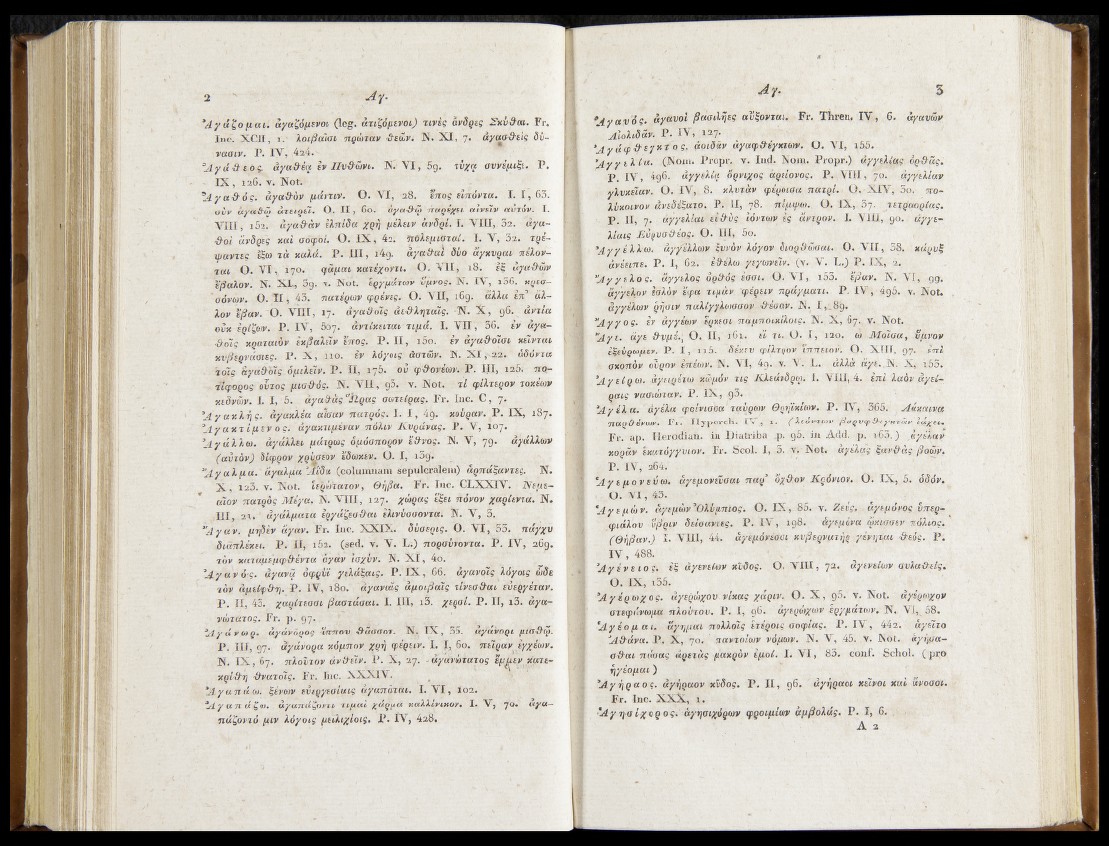 2 Ἀγ.
Ἀγάζομαι. ἀγαζόμενοι (leg. ἀτιζόμενοι) τινὲς ἄνδρες Σκύθαι. Fr.
Inc. XCII, 1. λοιβαῖσι πρώταν θεῶν. N. XI, 7. ἀγασθεὶς δύ-
νασιν. P. IV, 424.
Ἀγάθεος. ἀγαθέᾳ ἐν Πυθῶνι. N. VI, 59. τύχᾳ συνέμιξε. P.
IX, 126. v. Not.
Ἀγαθός. ἀγαθὸν μάντιν. O. VI, 28. ἔπος εἰπόντα. I. I, 63.
σὺν ἀγαθῷ ἀτειρεῖ. O. II, 60. ἀγαθῷ παρέχει αἰνεῖν αὐτόν. I.
VIII, 152. ἀγαθὰν ἐλπίδα χρὴ μέλειν ἀνδρί. I. VIII, 32. ἀγα-
θοὶ ἄνδρες καὶ σοφοί. O. IX, 42. πολεμισταί. I. V, 32. τρέ-
ψαντες ἔξω τὰ καλά. P. III, 149. ἀγαθαὶ δύο ἄγκυραι πέλον-
ται O. VI, 170. φᾶμαι κατέχοντι. O. VII, 18. ἐξ ἀγαθῶν
ἔβαλον. N. XI, 39. v. Not. ἐργμάτων ὕμνος. N. IV, 136. κρεσ-
σόνων. O. II, 43. πατέρων φρένες. O. VII, 169. ἄλλα ἐπ' ἄλ-
λον ἔβαν. O. VIII, 17. ἀγαθοῖς ἀεθληταῖς. N. X, 96. ἀντία
οὐκ ἐρίζων. P. IV, 507. ἀντίκειται τιμά. I. VII, 36. ἐν ἀγα-
θοῖς κραταιὸν ἐκβαλεῖν ἔπος. P. II, 150. ἐν ἀγαθοῖσι κεῖνται
κυβερνάσιες. P. X, 110. ἐν λόγοις ἀστῶν. N. XI, 22. ἁδόντα
τοῖς ἀγαθοῖς ὁμιλεῖν. P. II, 175. οὐ φθονέων. P. III, 125. πο-
τίφορος οὗτος μισθός. N. VII, 93. v. Not. τί φίλτερον τοκέων
κεδνῶν. I. I, 5. ἀγαθὰς Ὥρας σωτείρας. Fr. Inc. C, 7.
Ἀγακλής. ἀγακλέα αἶσαν πατρός. I. I, 49. κούραν. P. IX, 187.
Ἀγακτίμενος. ἀγακτιμέναν πόλιν Κυράνας. P. V, 107.
Ἀγάλλω. ἀγάλλει μάτρως ὁμόσπορον ἔθνος. N. V, 79. ἀγάλλων
(αὐτὸν) δίφρον χρύσεον ἔδωκεν. O. I, 139.
Ἄγαλμα. ἄγαλμα Ἀΐδα (columnam sepulcralem) ἁρπάξαντες. N.
X, 125. v. Not. ἱερώτατον, Θήβα. Fr. Inc. CLXXIV. Νεμε-
αῖον πατρὸς Μέγα. N. VIII, 127. χώρας ἕξει πόνον χαρίεντα. N.
III, 21. ἀγάλματα ἐργάζεσθαι ἐλινύσοντα. N. V, 3.
Ἄγαν. μηδὲν ἄγαν. Fr. Inc. XXIX. δύσερις. O. VI, 33. πάγχυ
διαπλέκει. P. II, 152. (sed. v. V. L.) πορσύνοντα. P. IV, 269.
τὸν καταμεμφθέντα ἄγαν ἰσχύν. N. XI, 40.
Ἀγανός. ἀγανᾷ ὀφρύϊ γελάξαις. P. IX, 66. ἀγανοῖς λόγοις ὧδε
τὸν ἀμείφθη. P. IV, 180. ἀγαναῖς ἀμοιβαῖς τίνεσθαι εὐεργέταν.
P. II, 43. χαρίτεσσι βαστάσαι. I. III, 13. χερσί. P. II, 13. ἀγα-
νώτατος. Fr. p. 97.
Ἀγάνωρ. ἀγάνορος ἵππου θᾶσσον. N. IX, 35. ἀγάνορι μισθῷ.
P. III, 97. ἀγάνορα κόμπον χρὴ φέρειν. I. I, 60. πεῖραν ἐγχέων.
N. IX, 67. πλοῦτον ἀνθεῖν. P. X, 27. ἀγανώτατος ἔμμεν κατε-
κρίθη θνατοῖς. Fr. Inc. XXXIV.
Ἀγαπάω. ξένων εὐεργεσίαις ἀγαπᾶται. I. VI, 102.
Ἀγαπάζω. ἀγαπάζοντι τιμαὶ χάρμα καλλίνικον. I. V, 70. ἀγα-
πάζοντό μιν λόγοις μειλιχίοις. P. IV, 428.
Ἀγ. 3
Ἀγαυός. ἀγαυοὶ βασιλῆες αὔξονται. Fr. Thren. IV, 6. ἀγαυῶν
Αἰολιδᾶν. P. IV, 127.
Ἀγάφθεγκτος. ἀοιδᾶν ἀγαφθέγκτων. O. VI, 155.
Ἀγγελία. (Nom. Propr. v. Ind. Nom. Propr.) ἀγγελίας ὀρθᾶς.
P. IV, 496. ἀγγελίᾳ ὄρνιχος ἀρείονος. P. VIII, 70. ἀγγελίαν
γλυκεῖαν. O. IV, 8. κλυτὰν φέροισα πατρί. O. XIV, 30. πο-
λύκοινον ἀνεδέξατο. P. II, 78. πέμψω. O. IX, 37. τετραορίας.
P. II, 7. ἀγγελίαι εὐθὺς ἰόντων ἐς ἄντρον. I. VIII, 90. ἀγγε-
λίαις Εὐρυσθέος. O. III, 50.
Ἀγγέλλω. ἀγγέλλων ξυνὸν λόγον διορθῶσαι. O. VII, 38. κάρυξ
ἀνέειπε. P. I, 62. ἐθέλω γεγωνεῖν. (v. V. L.) P. IX, 2.
Ἄγγελος. ἄγγελος ὀρθὸς ἐσσι. O. VI, 153. ἔβαν. N. VI, 99.
ἄγγελον ἐσλὸν ἔφα τιμὰν φέρειν πράγματι. P. IV, 495. v. Not.
ἀγγέλων ῥῆσιν παλίγγλωσσον θέσαν. N. I, 89.
Ἄγγος. ἐν ἀγγέων ἕρκεσι παμποικίλοις. N. X, 67. v. Not.
Ἄγε. ἄγε θυμέ, O. II, 161. εἴ τι. O. I, 120. ὦ Μοῖσα, ὕμνον
ἐξεύρωμεν. P. I, 115. δέκευ φίλτρον ἵππειον. O. XIII, 97. ἐπὶ
σκοπὸν οὖρον ἐπέων. N. VI, 49. v. V. L. ἀλλὰ ἄγε. N. X, 155.
Ἀγείρω. ἀγειρέτω κῶμόν τις Κλεάνδρῳ. I. VIII, 4. ἐπὶ λαὸν ἀγεί-
ραις νασιώταν. P. IX, 93.
Ἀγέλα. ἀγέλα φοίνισσα ταύρων Θρηϊκίων. P. IV, 365. Λάκαινα
παρθένων. Fr. Hyporch. IV, 1. (λεόντων βαρυφθεγκτᾶν ἰάχει.
Fr. ap. Herodian. in Diatriba p. 95. in Add. p. 163.) ἀγέλαν
κορᾶν ἑκατόγγυιον. Fr. Scol. I, 3. v. Not. ἀγέλας ξανθὰς βοῶν.
P. IV, 264.
Ἀγεμονεύω. ἀγεμονεῦσαι παρ' ὄχθον Κρόνιον. O. IX, 5. ὁδόν.
O. VI, 43.
Ἁγεμών. ἁγεμὼν Ὀλύμπιος. O. IX, 85. v. Ζεύς. ἀγεμόνος ὑπερ-
φιάλου ὕβριν δείσαντες. P. IV, 198. ἁγεμόνα ᾤκισσεν πόλιος.
(Θήβαν.) I. VIII, 44. ἁγεμόνεσσι κυβερνατὴρ γένηται θεός. P.
IV, 488.
Ἀγένειος. ἐξ ἀγενείων κῦδος. O. VIII, 72. ἀγενείων συλαθείς.
O. IX, 135.
Ἀγέρωχος. ἀγερώχου νίκας χάριν. O. X, 95. v. Not. ἀγέρωχον
στεφάνωμα πλούτου. P. I, 96. ἀγερώχων ἐργμάτων. N. VI, 58.
Ἁγέομαι. ἅγημαι πολλοῖς ἑτέροις σοφίας. P. IV, 442. ἁγεῖτο
Ἀθάνα. P. X, 70. παντοίων νόμων. N. V, 45. v. Not. ἁγήμα-
σθαι πάσας ἀρετὰς μακρὸν ἐμοί. I. VI, 83. conf. Schol. (pro
ἡγέομαι)
Ἀγήραος. ἀγήραον κῦδος. P. II, 96. ἀγήραοι κεῖνοι καὶ ἄνοσοι.
Fr. Inc. XXX, 1.
Ἁγησίχορος. ἁγησιχόρων φροιμίων ἀμβολάς. P. I, 6.
A 2